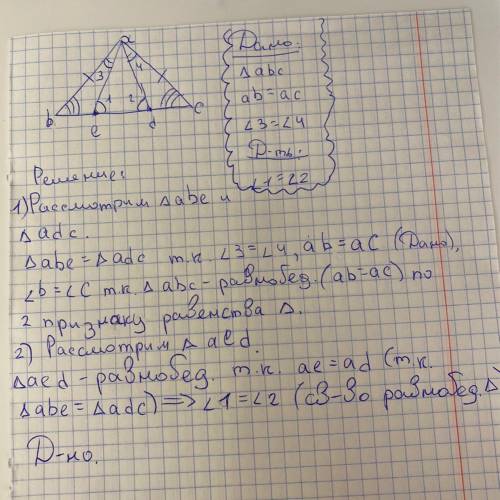 a
3 4
1 2
b e d c
Дано:
Δabc
ab=ac
∠3=∠4
Д-ть:
∠1=∠2
Решение:
1)Рассмотрим Δabe и
Δadc.
Δabe=Δadc т.к. ∠3=∠4, ab=ac (Дано),
∠b=∠c т.к. Δabc-равнобед.(ab=ac) по
2 признаку равенства Δ.
2) Рассмотрим Δaed.
Δaed-равнобед. т.к. ae=ad (т.к.
Δabe=Δadc)⟹∠1=∠2 (св-во равнобед.Δ)
Д-но.